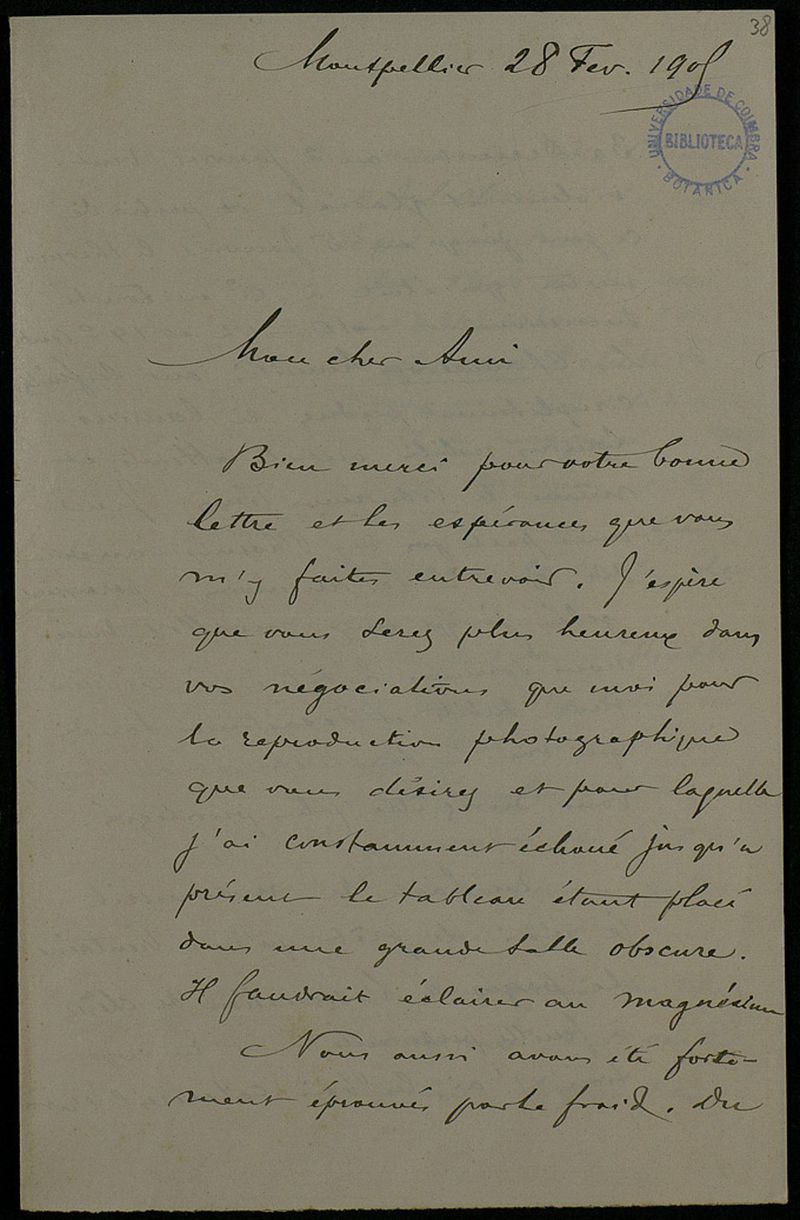 38
Montpellier 28 Fev. 1905
UNIVERSIDADE DE COIMBRA
BIBLIOTECA
BOTANICA
Mon cher Ami
Bien merci pour votre bonne
lettre et les espérances que vous
m'y faites entrevoir. J'espère
que vous serez plus heureux dans
vos négociations que moi pour
la reproduction photographique
que vous désirez et pour laquelle
j'ai constamment échoué jusqu'a
présent le tableau étant placé
dans une grande salle obscure.
Il faudrait éclairer au magnésium
Nous aussi avons été forte-
ment éprouvés par le froid. Du